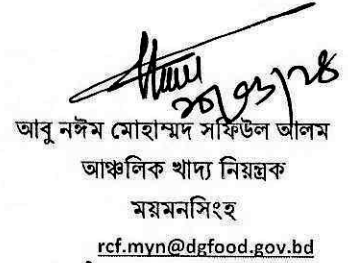 আবু নঈম মোহাম্মদ সফিউল আলম
আঞ্চলিক খাদ্য নিয়ন্ত্রক
ময়মনসিংহ
rcf.myn@dgfood.gov.bd